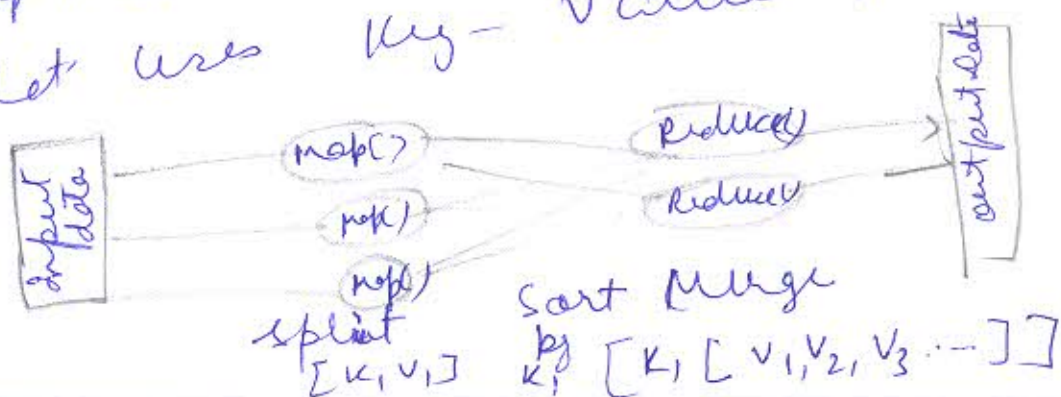 it uses Key-Value
Input data
map()
map()
map()
Reduce()
Reduce()
output data
split
[K, V,]
Sort Merge
by K,
[K, [V1, V2, V3 ....]]